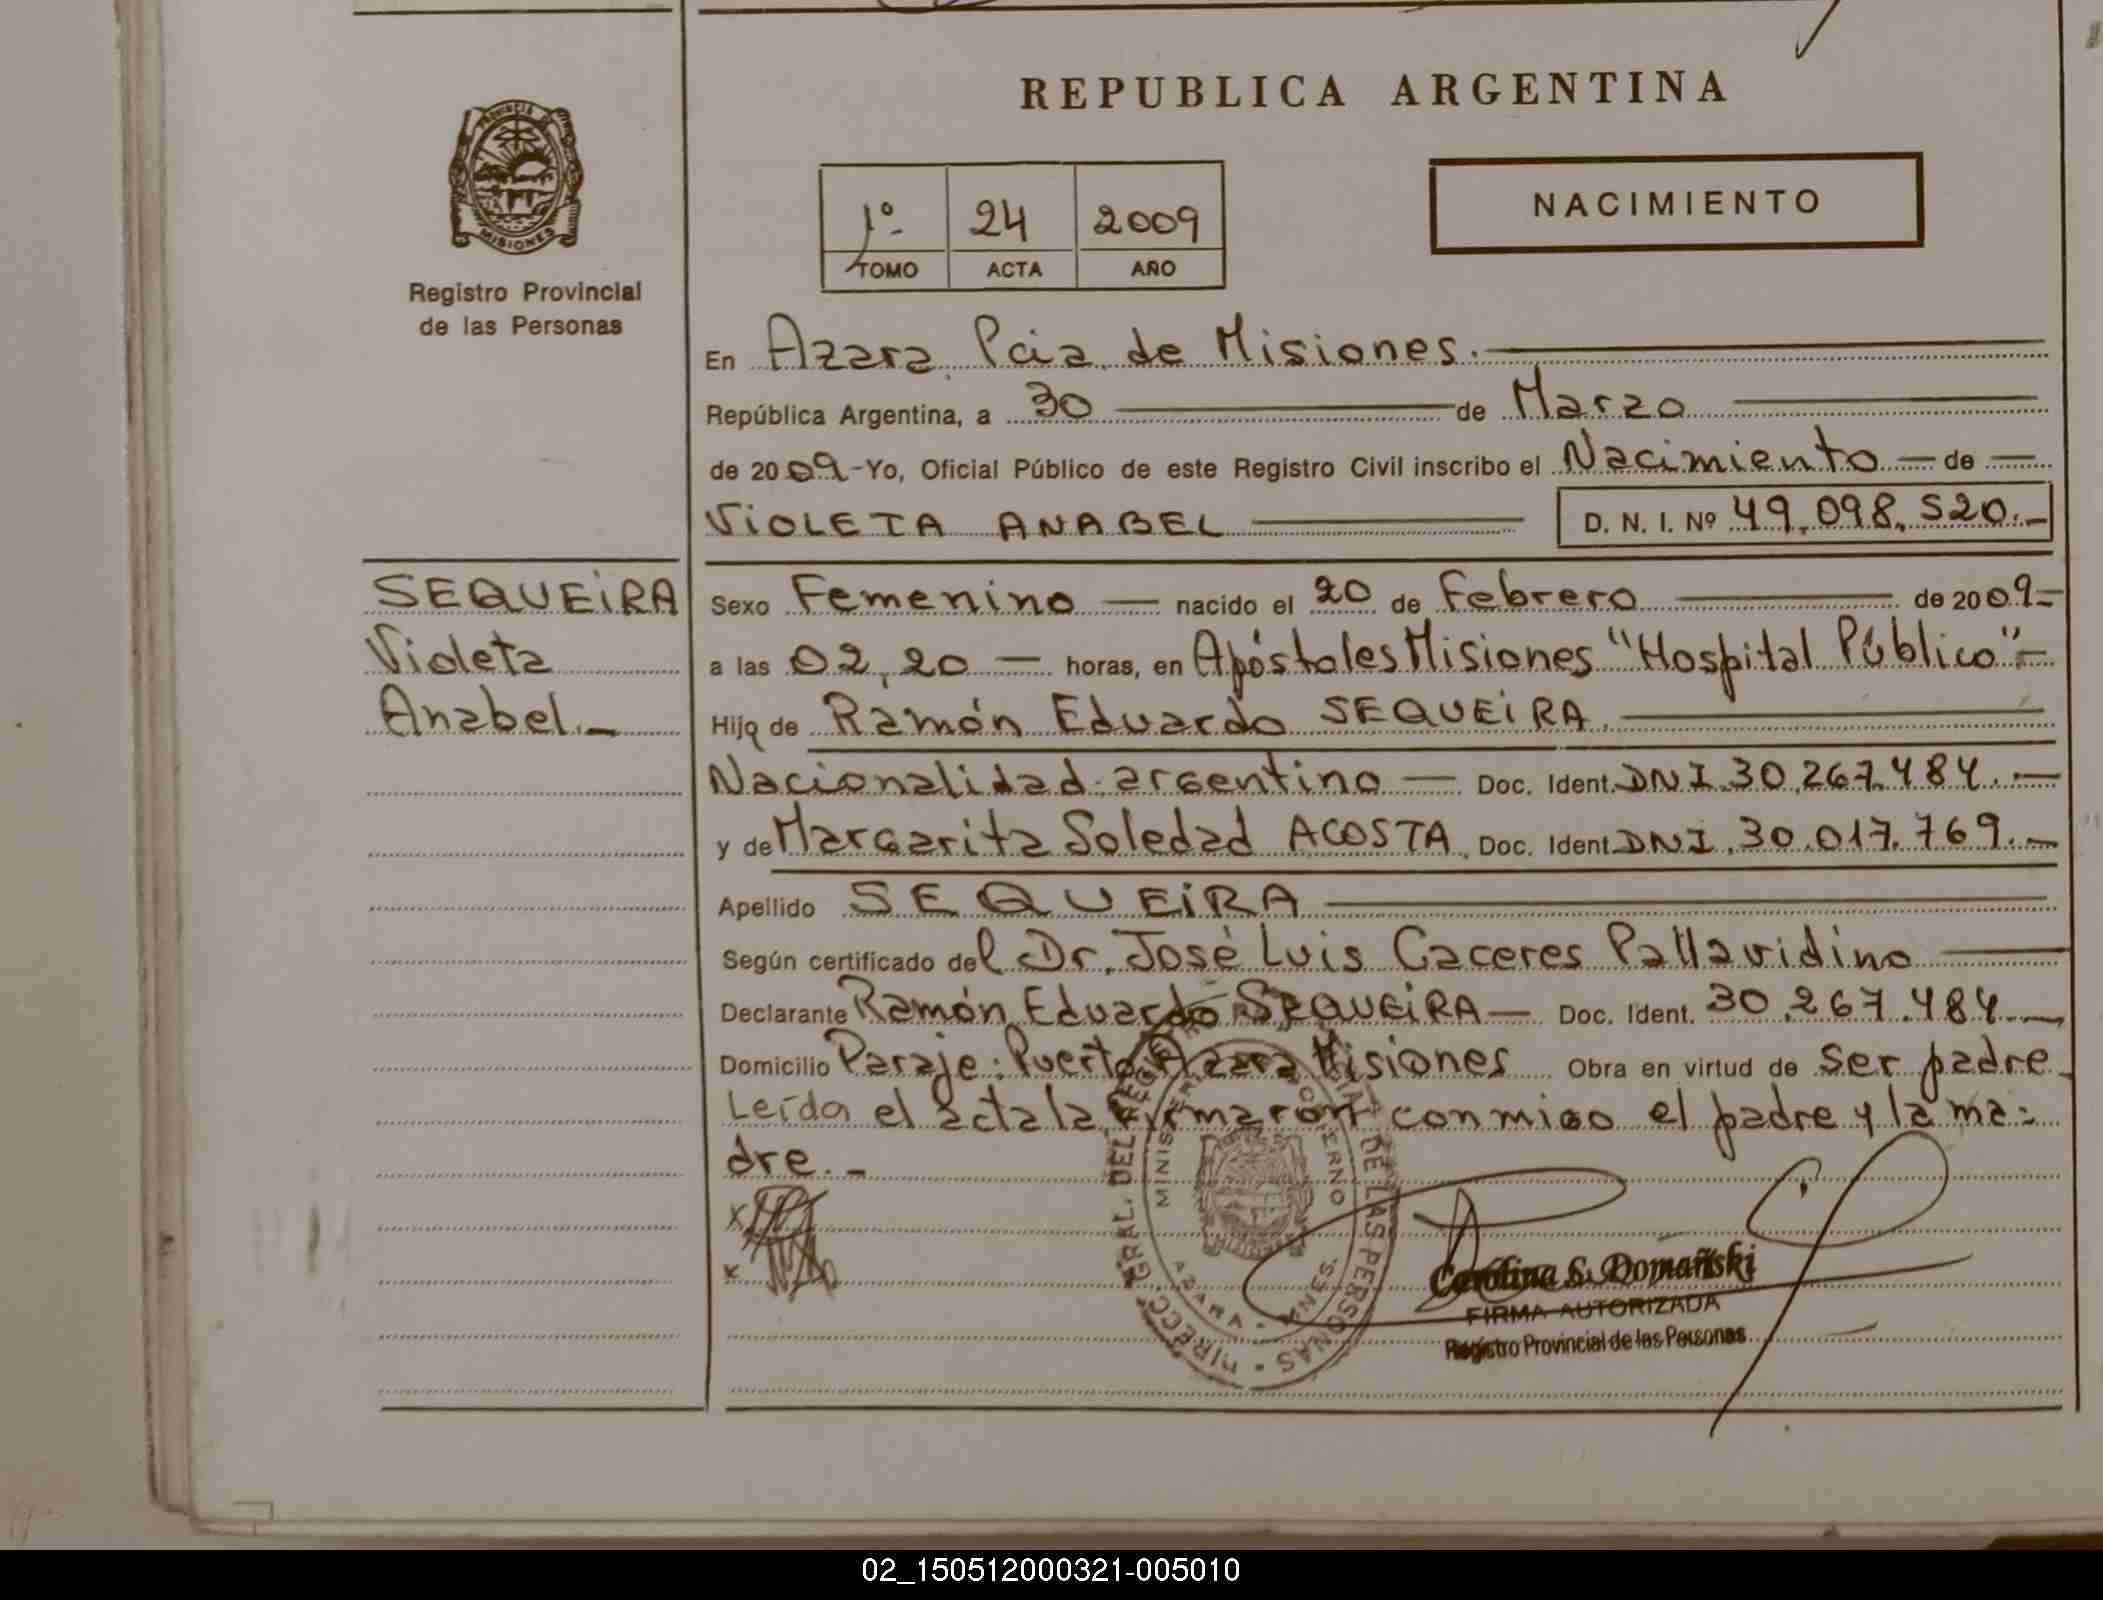 REPUBLICA ARGENTINA
PROVINCIA DE
MISIONES
Registro Provincial
de las Personas
1º 24 2009
TOMO ACTA AÑO
NACIMIENTO
En Azara, Pcia. de Misiones.
República Argentina, a 30 de Marzo
de 2009 - Yo, Oficial Público de este Registro Civil inscribo el Nacimiento — de —
VIOLETA ANABEL D. N. I. Nº 49.098.520.-
SEQUEIRA
Violeta
Anabel.-
Sexo Femenino — nacido el 20 de Febrero de 2009.-
a las 02,20 — horas, en Apóstoles Misiones "Hospital Público".-
Hija de Ramón Eduardo SEQUEIRA.
Nacionalidad: argentino — Doc. Ident. DNI. 30.267.484.-
y de Margarita Soledad ACOSTA. Doc. Ident. DNI. 30.017.769.-
Apellido SEQUEIRA
Según certificado del Dr. José Luis Caceres Pallavidino
Declarante Ramón Eduardo SEQUEIRA — Doc. Ident. 30.267.484.-
Domicilio Paraje: Puerto Azara Misiones Obra en virtud de ser padre
Leída el acta la firmaron conmigo el padre y la ma-
dre.-
DIRECC. GRAL. DEL REG. DE LAS PERSONAS
AZARA - MNES.
Carolina S. Domañski
FIRMA AUTORIZADA
Registro Provincial de las Personas
02_150512000321-005010